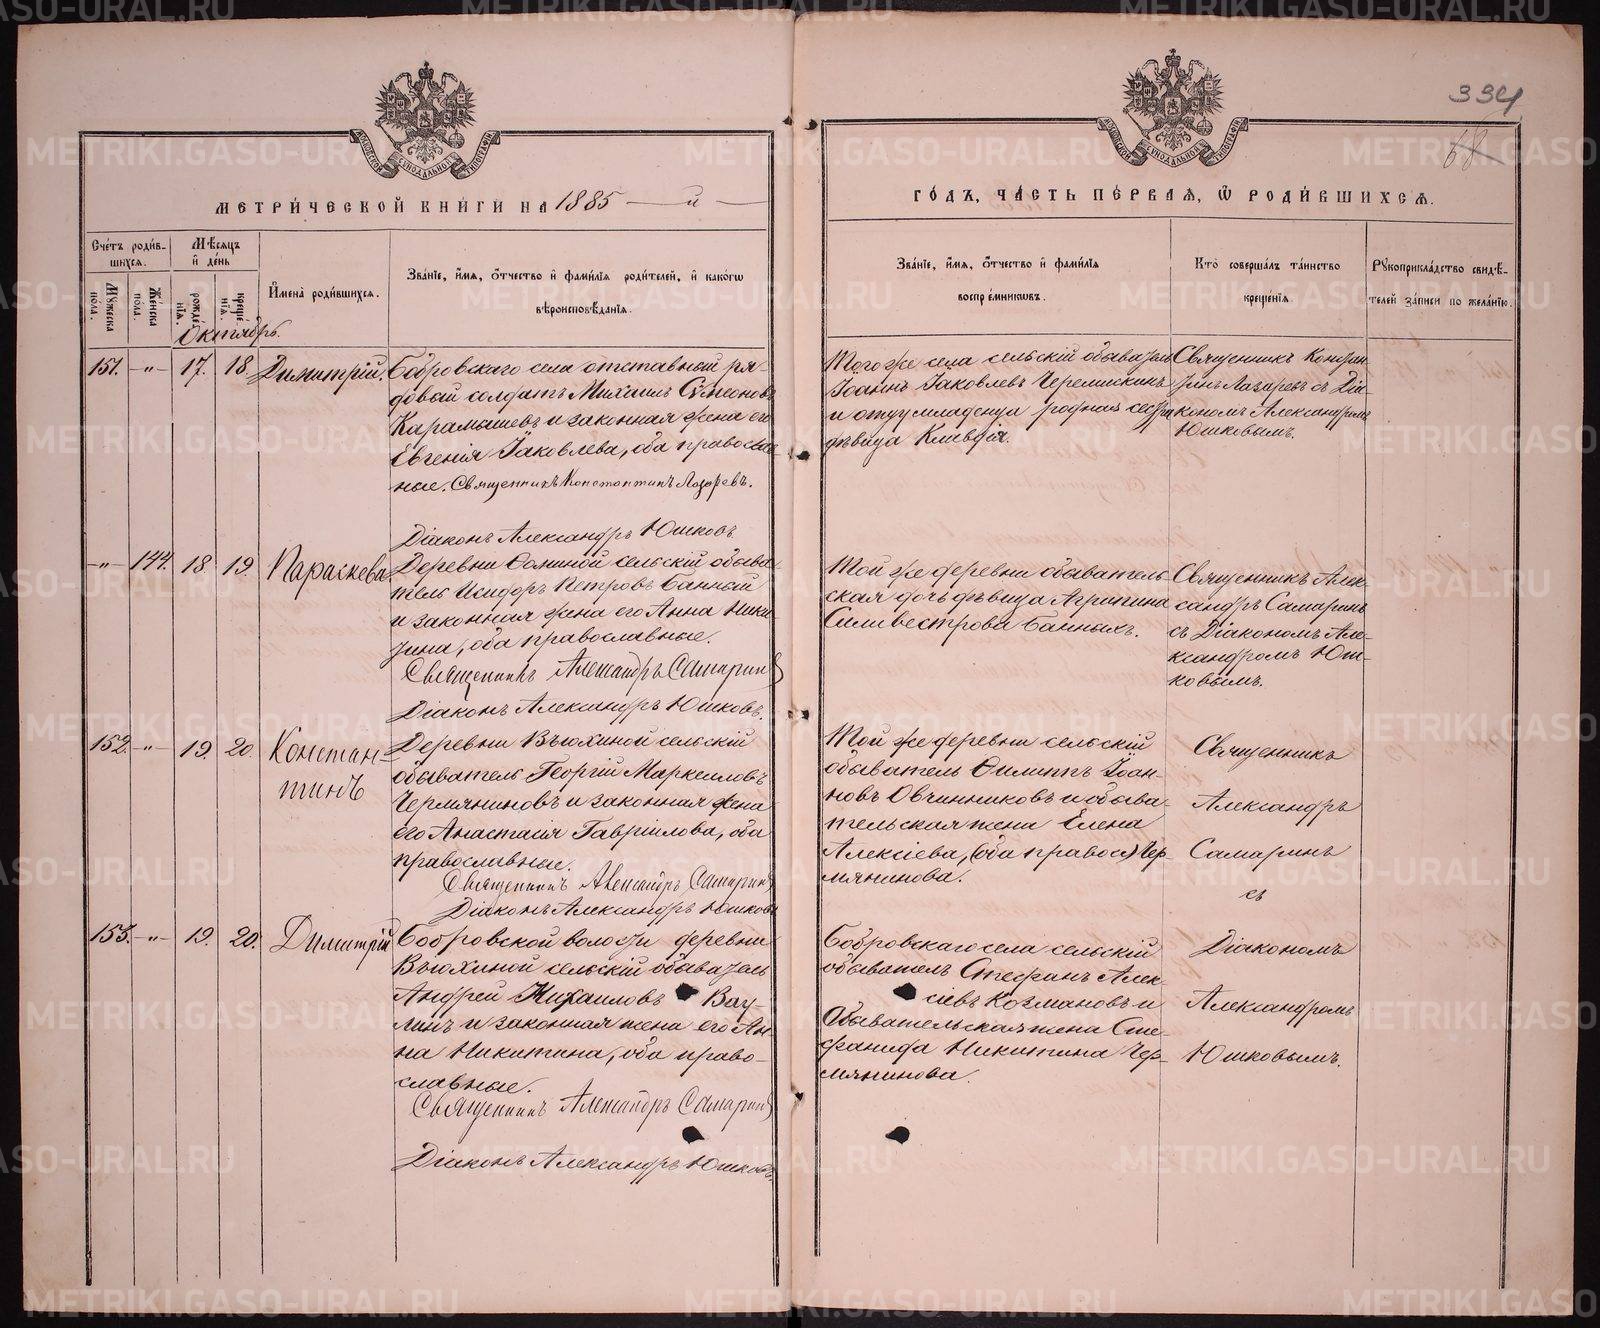 334
68
МЕТРИ́ЧЕСКОЙ КНИ́ГИ НА 1885 — й —
ГО́ДЪ, ЧА́СТЬ ПЕ́РВАЯ, Ѽ РОДИ́ВШИХСЯ.
Сче́тъ роди́в-
шихся.
Мѣ́сяцъ
и҆ де́нь
И҆мена̀ роди́вшихся.
Зва́нїе, и҆́мя, ѻ҆́тчество и҆ фами́лїя роди́телей, и҆ како́гѡ
вѣроисповѣ́данїя.
Зва́нїе, и҆́мя, ѻ҆́тчество и҆ фами́лїя
воспрїе́мниковъ.
Кто̀ соверша́лъ та́инство
креще́нїя
Рꙋкоприкла́дство свидѣ́-
телей за́писи по жела́нїю.
Мꙋжеска
по́ла.
Же́нска
по́ла.
рожде́
нїя.
креще́
нїя.
Октябрь.
151. -„- 17. 18. Димитрій.
Бобровскаго села отставный ря-
довый солдатъ Михаилъ Сѵмеоновъ
Карамышевъ и законная жена его
Евгенія Іаковлева, оба православ-
ные. Священникъ Константинъ Лазаревъ.
Діаконъ Александръ Юшковъ.
Того же села сельскій обыватель
Іоаннъ Іаковлевъ Черемискинъ
и отцу младенца родная сестра
дѣвица Клавдія.
Священникъ Констан-
тинъ Лазаревъ съ Діа-
кономъ Александромъ
Юшковымъ.
-„- 144. 18. 19. Параскева.
Деревни Фоминой сельскій обыва-
тель Исидоръ Петровъ Банный
и законная жена его Анна Ники-
тина, оба православные.
Священникъ Александръ Самаринъ
Діаконъ Александръ Юшковъ.
Той же деревни обыватель-
ская дочь дѣвица Агрипина
Силивестрова Банныхъ.
Священникъ Алек-
сандръ Самаринъ
съ Діакономъ Але-
ксандромъ Юш-
ковымъ.
152. -„- 19. 20. Констан-
тинъ
Деревни Вьюхиной сельскій
обыватель Георгій Маркелловъ
Чермяниновъ и законная жена
его Анастасія Гавріилова, оба
православные.
Священникъ Александръ Самаринъ
Діаконъ Александръ Юшковъ
Той же деревни сельскій
обыватель Филиппъ Іоан-
новъ Овчинниковъ и обыва-
тельская жена Елена
Алексіева, (оба правосл) Чер-
мянинова.
Священникъ
Александръ
Самаринъ
съ
153. -„- 19. 20. Димитрій
Бобровской волости деревни
Вьюхиной сельскій обыватель
Андрей Михаиловъ Вау-
линъ и законная жена его Ан-
на Никитина, оба право-
славные.
Священникъ Александръ Самаринъ
Діаконъ Александръ Юшковъ.
Бобровскаго села сельскій
обыватель Стефанъ Алек-
сіевъ Козмановъ и
Обывательская жена Сте-
фанида Никитина Чер-
мянинова.
Діакономъ
Александромъ
Юшковымъ.
METRIKI.GASO-URAL.RU